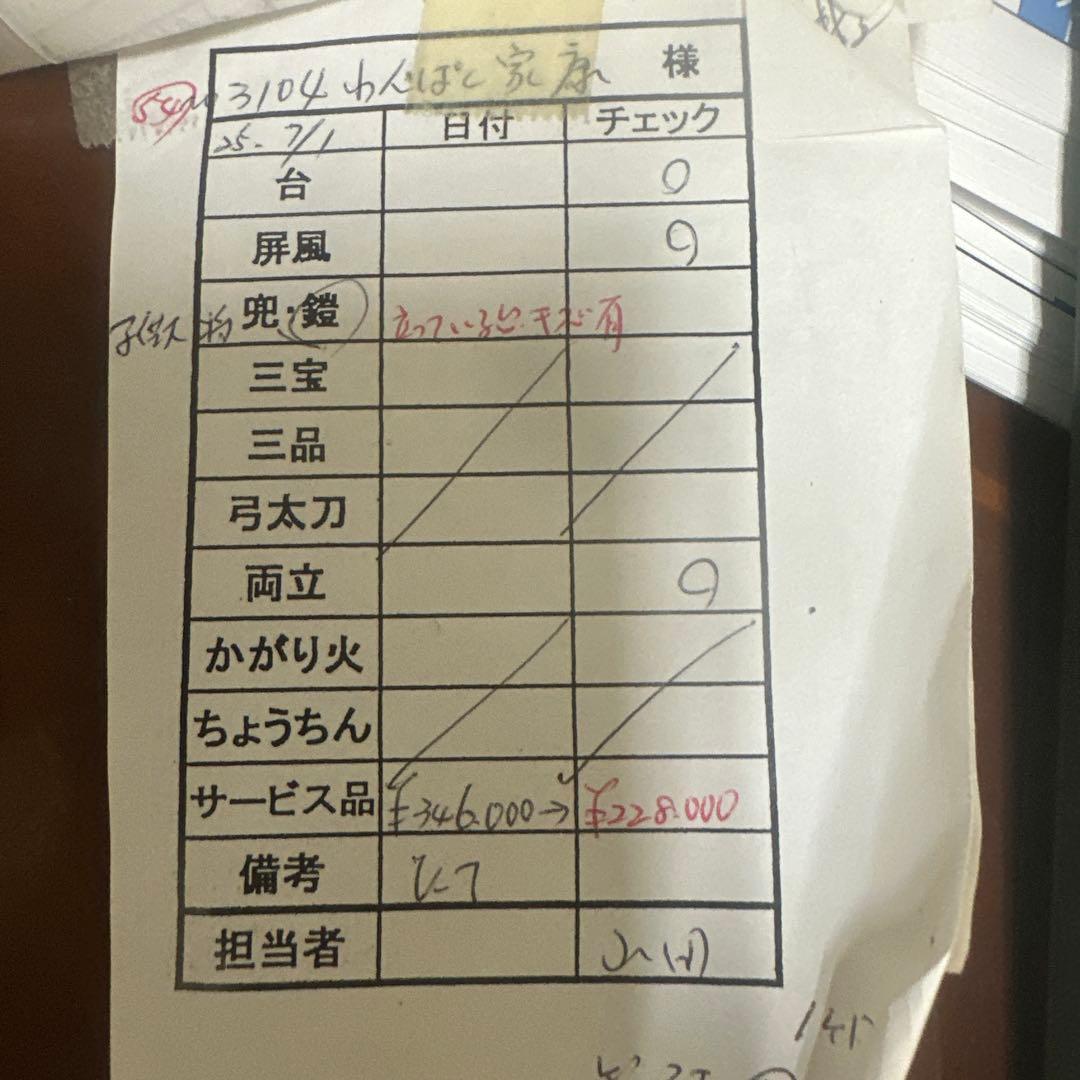 3104 わんぱく家康 様
25. 7/1 日付 チェック
台 〇
屏風 〇
兜・鎧 立っている台キズ有
三宝
三品
弓太刀
両立 〇
かがり火
ちょうちん
サービス品 ¥346.000→ ¥228.000
備考
担当者